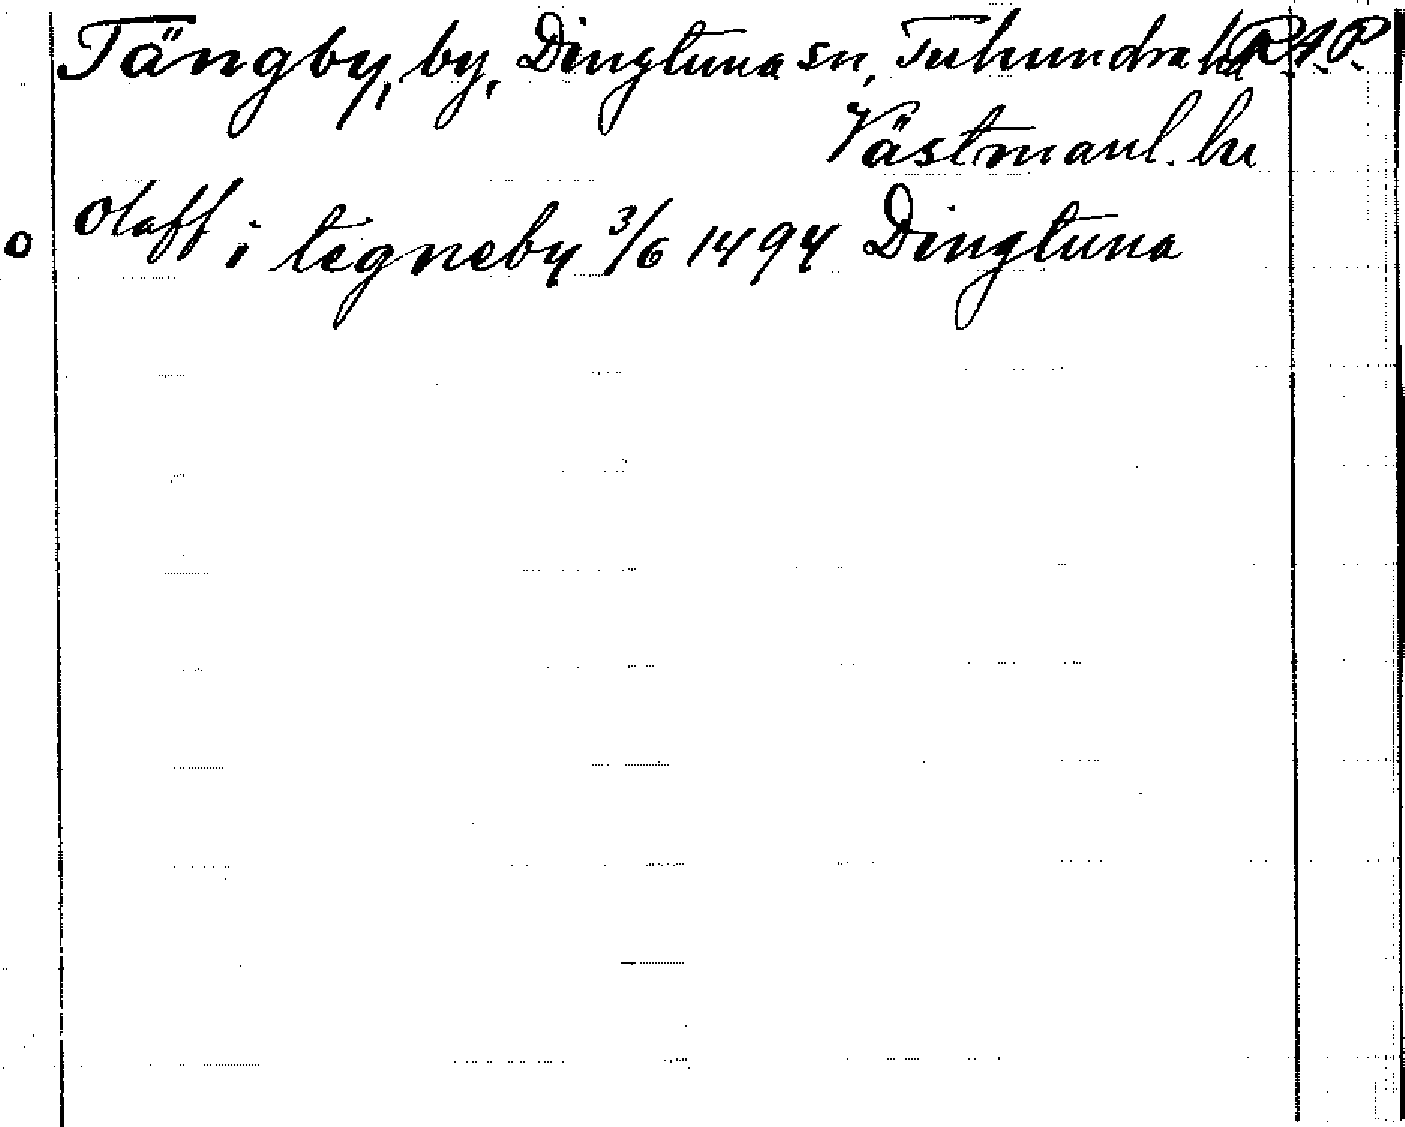 Tängby, by, Dingtuna sn, Tuhundra hd R.A.P.
Västmanl. ln
o Olaff i tegneby 3/6 1494 Dingtuna